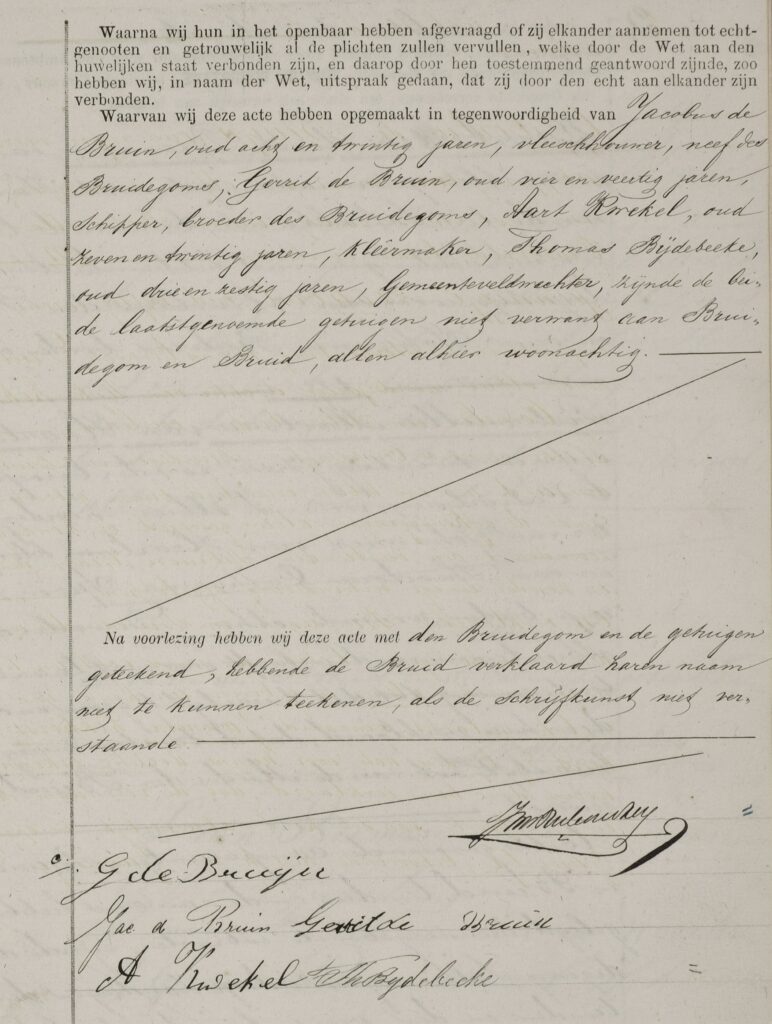 Waarna wij hun in het openbaar hebben afgevraagd of zij elkander aannemen tot echt-
genooten en getrouwelijk al de plichten zullen vervullen, welke door de Wet aan den
huwelijken staat verbonden zijn, en daarop door hen toestemmend geantwoord zijnde, zoo
hebben wij, in naam der Wet, uitspraak gedaan, dat zij door den echt aan elkander zijn
verbonden.
Waarvan wij deze acte hebben opgemaakt in tegenwoordigheid van Jacobus de
Bruin, oud acht en twintig jaren, vleeschhouwer, neef des
Bruidegoms, Gerrit de Bruin, oud vier en veertig jaren,
Schipper, broeder des Bruidegoms, Aart Kwekel, oud
zeven en twintig jaren, kleêrmaker, Thomas Bijdebeeke,
oud drie en zestig jaren, Gemeenteveldwachter, zijnde de bei-
de laatstgenoemde getuigen niet verwant aan Brui-
degom en Bruid, allen alhier woonachtig.
Na voorlezing hebben wij deze acte met den Bruidegom en de getuigen
geteekend, hebbende de Bruid verklaard haren naam
niet te kunnen teekenen, als de schrijfkunst niet ver-
staande
G de Bruijn
Jac d Bruin Gerrit de Bruin
A Kwekel Th Bydebeeke